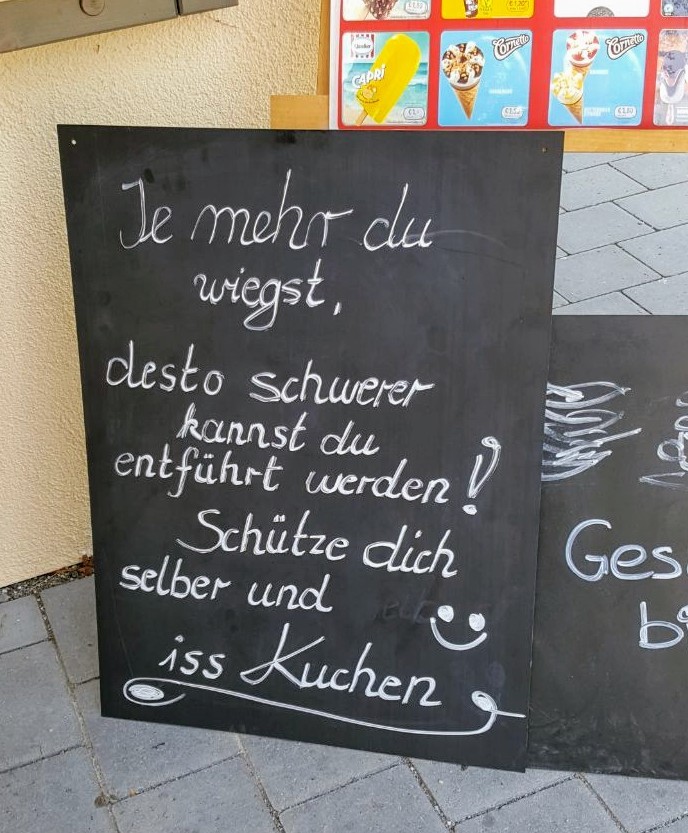 CAPRI
Cornetto
Cornetto
Je mehr du
wiegst,
desto schwerer
kannst du
entführt werden!
Schütze dich
selber und
iss Kuchen
Ges
b